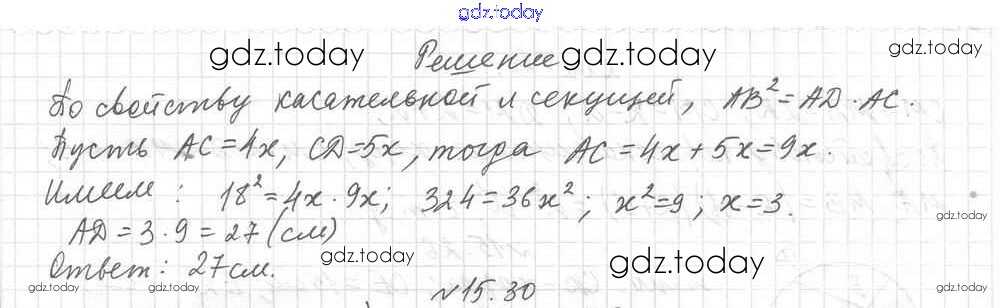 gdz.today
gdz.today Решение gdz.today
gdz.today
По свойству касательной и секущей, AB² = AD · AC.
Пусть AC = 4x, CD = 5x, тогда AC = 4x + 5x = 9x.
Имеем: 18² = 4x · 9x; 324 = 36x²; x² = 9; x = 3.
gdz.today
AD = 3 · 9 = 27 (см)
gdz.today gdz.today
Ответ: 27 см.
gdz.today gdz.today gdz.today
№15.30